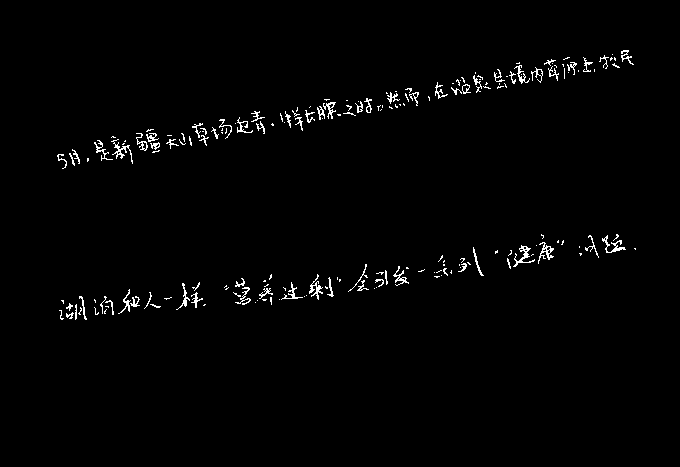 5月,是新疆天山草场返青,牛羊长膘之时。然而,在温泉县境内草原上,牧民
湖泊和人一样,“营养过剩”会引发一系列“健康”问题.